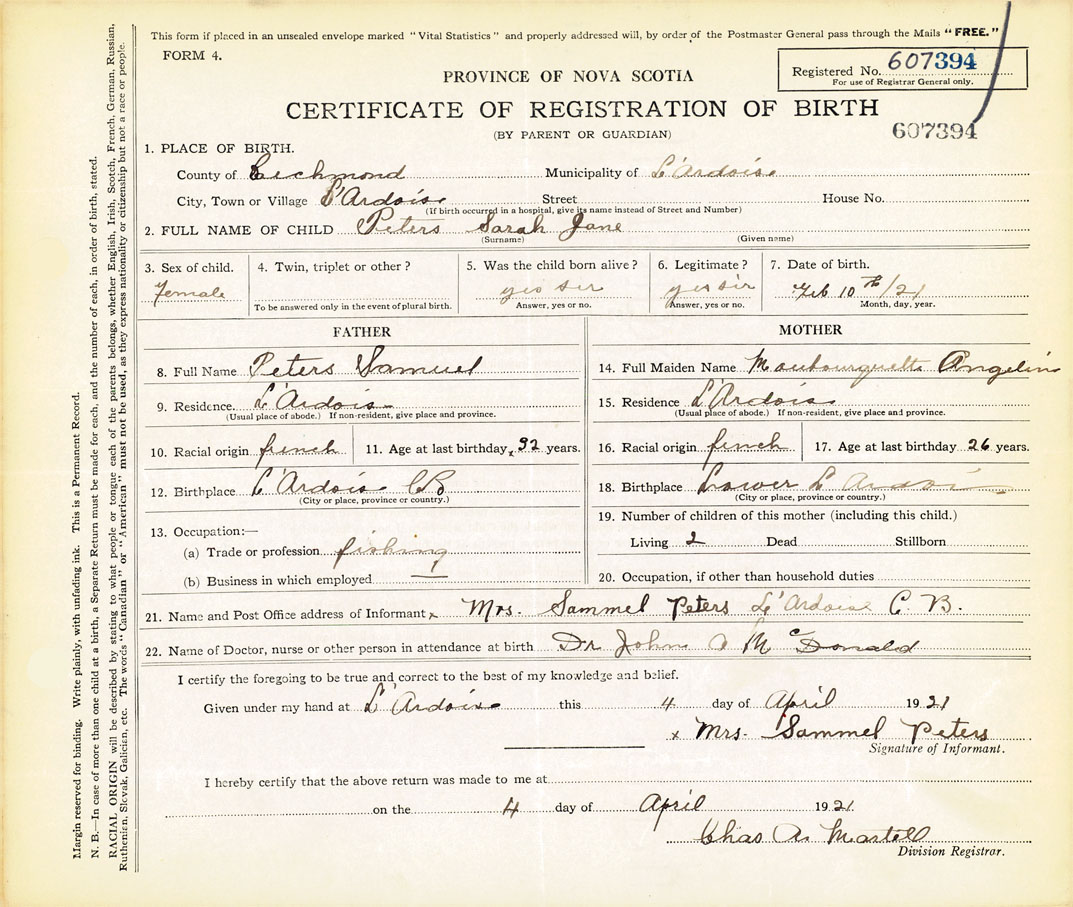 This form if placed in an unsealed envelope marked "Vital Statistics" and properly addressed will, by order of the Postmaster General pass through the Mails "FREE."
FORM 4.
Registered No. 607394
For use of Registrar General only.
PROVINCE OF NOVA SCOTIA
CERTIFICATE OF REGISTRATION OF BIRTH
607394
(BY PARENT OR GUARDIAN)
1. PLACE OF BIRTH.
County of Richmond Municipality of L'Ardoise
City, Town or Village L'Ardoise Street House No.
(If birth occurred in a hospital, give its name instead of Street and Number)
2. FULL NAME OF CHILD Peters Sarah Jane
(Surname) (Given name)
3. Sex of child. 4. Twin, triplet or other? 5. Was the child born alive? 6. Legitimate? 7. Date of birth.
Female yes sir yes sir Feb 10th/21
To be answered only in the event of plural birth. Answer, yes or no. Answer, yes or no. Month, day, year.
FATHER MOTHER
8. Full Name Peters Samuel 14. Full Maiden Name Angelin
9. Residence. L'Ardois 15. Residence L'Ardois
(Usual place of abode.) If non-resident, give place and province. (Usual place of abode.) If non-resident, give place and province.
10. Racial origin french 11. Age at last birthday 32 years. 16. Racial origin french 17. Age at last birthday 26 years.
12. Birthplace L'Ardois CB 18. Birthplace Lower L'Ardois
(City or place, province or country.) (City or place, province or country.)
13. Occupation:— 19. Number of children of this mother (including this child.)
(a) Trade or profession fishing Living 2 Dead Stillborn
(b) Business in which employed — 20. Occupation, if other than household duties
21. Name and Post Office address of Informant x Mrs. Sammel Peters L'Ardoise C. B.
22. Name of Doctor, nurse or other person in attendance at birth Dr John A McDonald
I certify the foregoing to be true and correct to the best of my knowledge and belief.
Given under my hand at L'Ardoise this 4 day of April 1921
x Mrs. Sammel Peters
Signature of Informant.
I hereby certify that the above return was made to me at
on the 4 day of April 1921
Chas A. Martell
Division Registrar.
Margin reserved for binding. Write plainly, with unfading ink. This is a Permanent Record.
N. B.—In case of more than one child at a birth, a Separate Return must be made for each, and the number of each, in order of birth, stated.
RACIAL ORIGIN will be described by stating to what people or tongue each of the parents belongs, whether English, Irish, Scotch, French, German, Russian,
Ruthenien, Slovak, Galician, etc. The words "Canadian" or "American" must not be used, as they express nationality or citizenship but not a race or people.